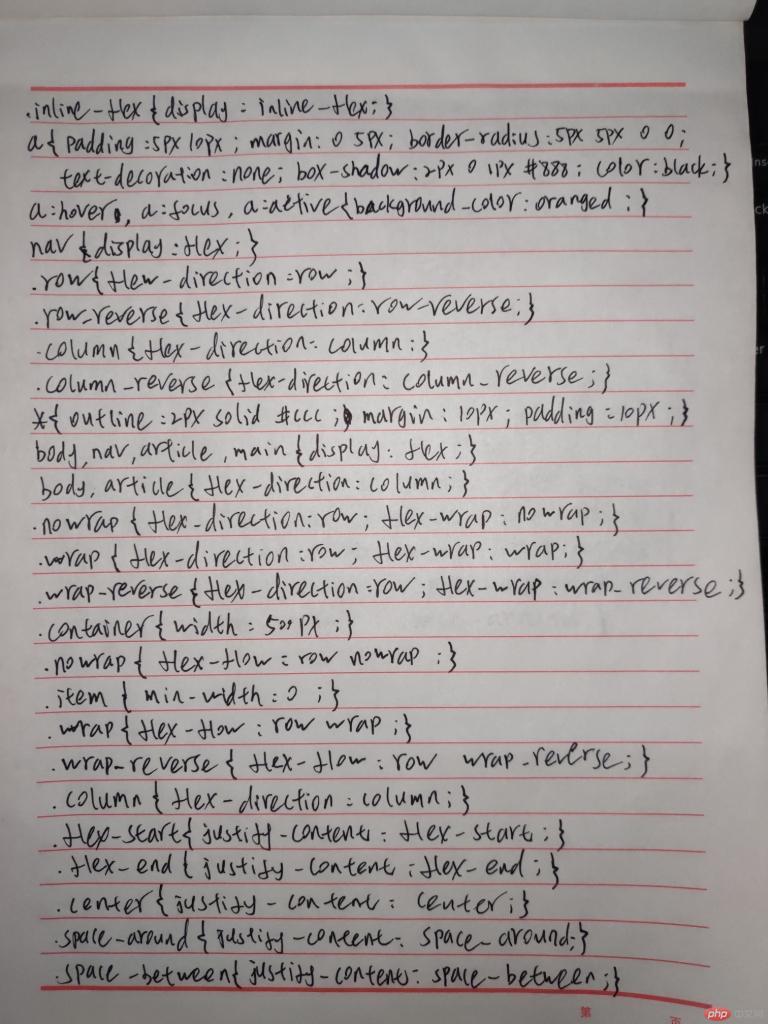 .inline-flex{display:inline-flex;}
a{padding:5px 10px; margin:0 5px; border-radius:5px 5px 0 0;
text-decoration:none; box-shadow:2px 0 1px #888; color:black;}
a:hover, a:focus, a:active{background-color:oranged;}
nav{display:flex;}
.row{flew-direction:row;}
.row-reverse{flex-direction:row-reverse;}
.column{flex-direction:column;}
.column-reverse{flex-direction:column-reverse;}
*{outline:2px solid #ccc; margin:10px; padding=10px;}
body,nav,article,main{display:flex;}
body,article{flex-direction:column;}
.nowrap{flex-direction:row; flex-wrap:nowrap;}
.wrap{flex-direction:row; flex-wrap:wrap;}
.wrap-reverse{flex-direction:row; flex-wrap:wrap-reverse;}
.container{width:500px;}
.nowrap{flex-flow:row nowrap;}
.item{min-width:0;}
.wrap{flex-flow:row wrap;}
.wrap-reverse{flex-flow:row wrap-reverse;}
.column{flex-direction:column;}
.flex-start{justify-content:flex-start;}
.flex-end{justify-content:flex-end;}
.center{justify-content:center;}
.space-around{justify-content:space-around;}
.space-between{justify-content:space-between;}
第 页
php 中文网